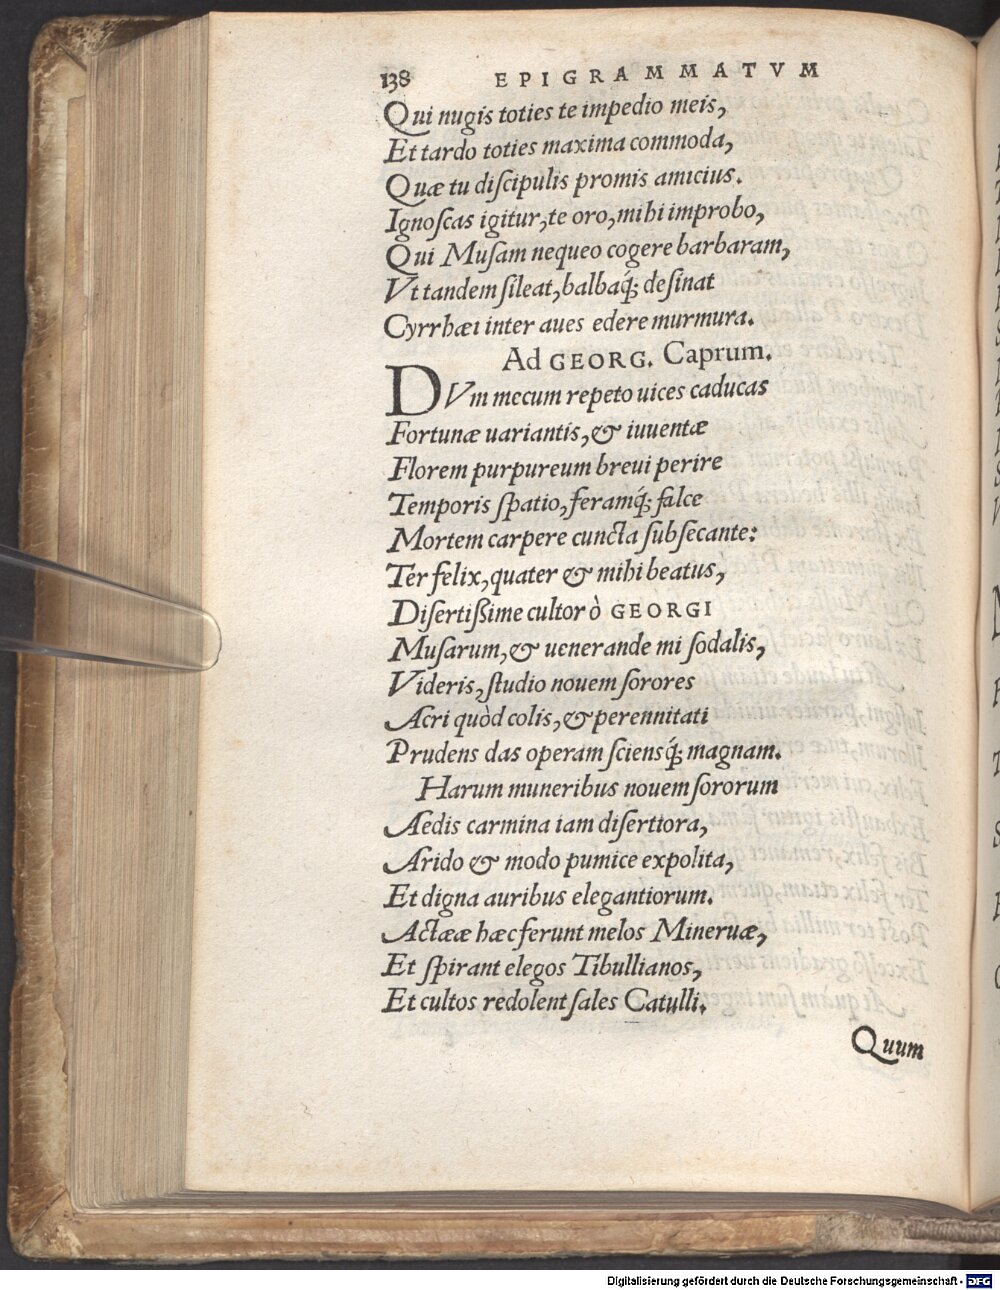 138 EPIGRAMMATVM
Qui nugis toties te impedio meis,
Et tardo toties maxima commoda,
Quæ tu diſcipulis promis amicius.
Ignoſcas igitur, te oro, mihi improbo,
Qui Muſam nequeo cogere barbaram,
Vt tandem ſileat, balbaq́; deſinat
Cyrrhæi inter aues edere murmura.
Ad GEORG. Caprum.
DVm mecum repeto uices caducas
Fortunæ uariantis, & iuuentæ
Florem purpureum breui perire
Temporis ſpatio, feramq́; falce
Mortem carpere cuncta ſubſecante:
Ter felix, quater & mihi beatus,
Diſertißime cultor ò GEORGI
Muſarum, & uenerande mi ſodalis,
Videris, ſtudio nouem ſorores
Acri quòd colis, & perennitati
Prudens das operam ſciensq́; magnam.
Harum muneribus nouem ſororum
Aedis carmina iam diſertiora,
Arido & modo pumice expolita,
Et digna auribus elegantiorum.
Actææ hæc ferunt melos Mineruæ,
Et ſpirant elegos Tibullianos,
Et cultos redolent ſales Catulli.
Quum
Digitalisierung gefördert durch die Deutsche Forschungsgemeinschaft - DFG